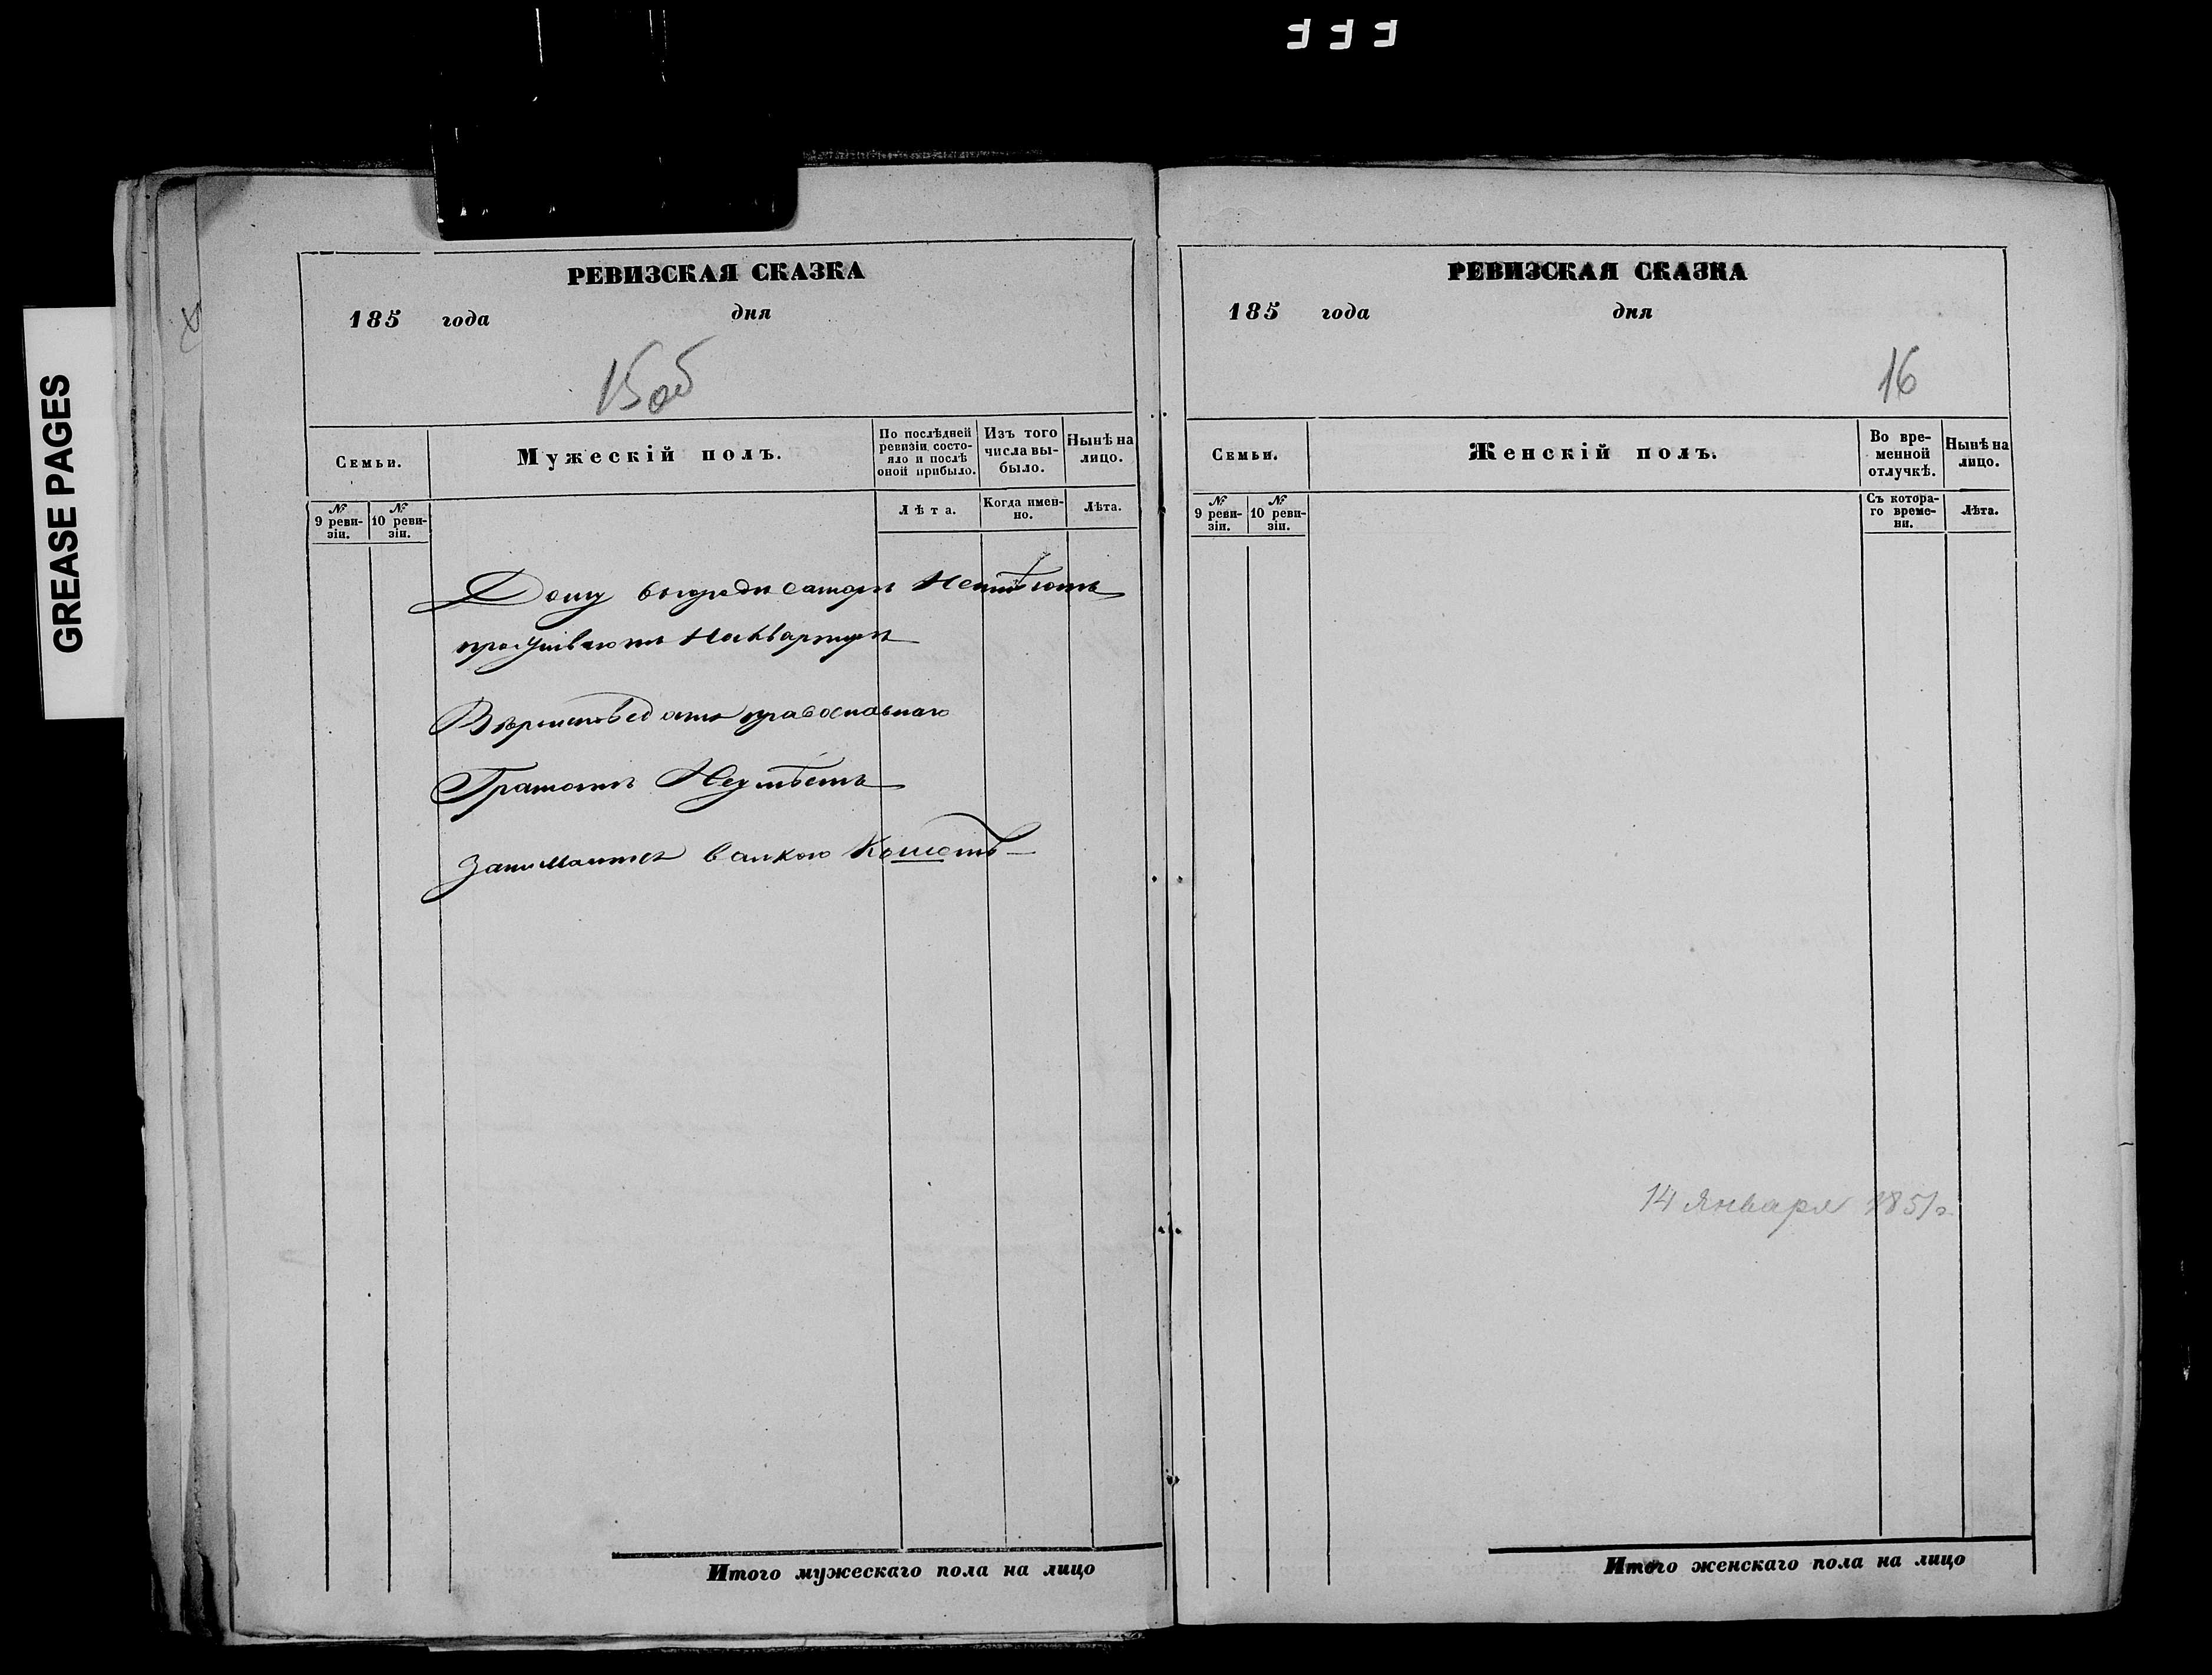 GREASE PAGES
РЕВИЗСКАЯ СКАЗКА
185 года дня
15об
Семьи.
Мужескій полъ.
По послѣдней ревизіи состояло и послѣ оной прибыло.
Изъ того числа выбыло.
Нынѣ на лицо.
№ 9 ревизіи.
№ 10 ревизіи.
Лѣта.
Когда именно.
Лѣта.
Дому въ городе Неимѣютъ
проживаютъ Наквартире
православнаго
Грамотѣ Неумѣетъ
Занимаится валкою
Итого мужескаго пола на лицо
РЕВИЗСКАЯ СКАЗКА
185 года дня
16
Семьи.
Женскій полъ.
Во временной отлучкѣ.
Нынѣ на лицо.
№ 9 ревизіи.
№ 10 ревизіи.
Съ котораго времени.
Лѣта.
14 Января 1851г.
Итого женскаго пола на лицо